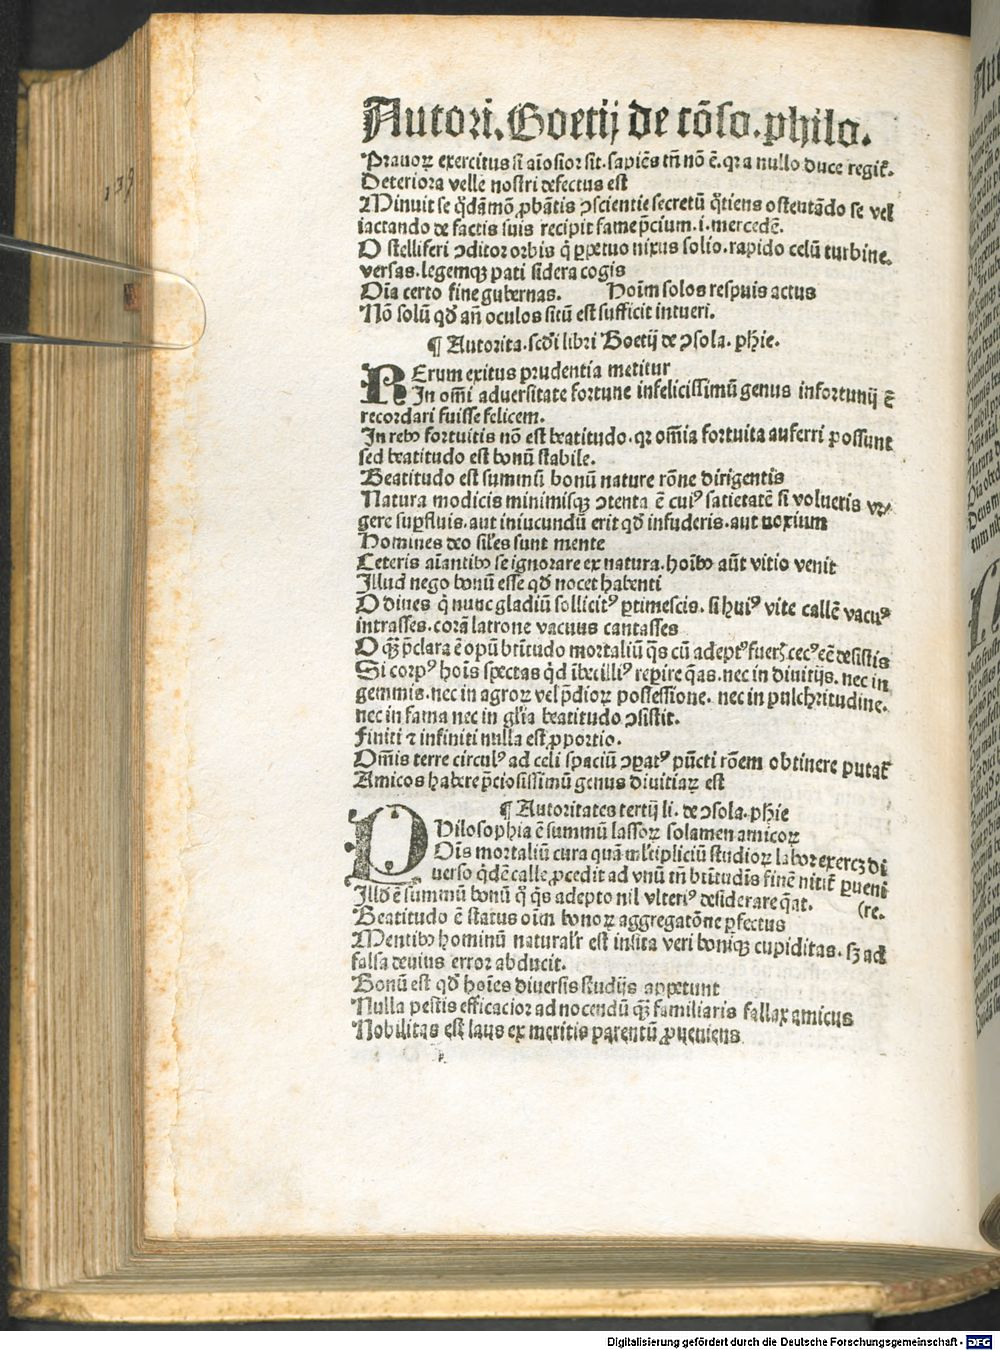 Autori. Boetij de cōso. philo.
Prauoꝝ exercitus si aīosior sit. sapiēs tn̄ nō ē. qꝛ a nullo duce regit̄.
Deteriora velle nostri defectus est
Minuit se qd̄āmō ꝓbātis ꝯscientie secretū q̄tiens ostentādo se vel
iactando de factis suis recipit fame p̄cium .i. mercedē.
O stelliferi ꝯditor orbis q̄ ꝑpetuo nixus solio. rapido celū turbine.
versas. legemqꝫ pati sidera cogis
Oīa certo fine gubernas. Hoīm solos respuis actus
Nō solū qd̄ an̄ oculos sitū est sufficit intueri.
¶ Autorita. scd̄i libri Boetij de ꝯsola. phīe.
RErum exitus prudentia metitur
In om̄i aduersitate fortune infelicissimū genus infortunij ē
recordari fuisse felicem.
In rebꝰ fortuitis nō est beatitudo. qꝛ om̄ia fortuita auferri possunt
sed beatitudo est bonū stabile.
Beatitudo est summū bonū nature rōne dirigentis
Natura modicis minimisqꝫ ꝯtenta ē cuiꝰ satietatē si volueris vr⸗
gere suꝑfluis. aut iniucundū erit qd̄ infuderis. aut noxium
Homines deo siles sunt mente
Ceteris aīantibꝰ se ignorare ex natura. hoībꝰ aūt vitio venit
Illud nego bonū esse qd̄ nocet habenti
O diues q̄ nunc gladiū sollicitꝰ ꝑtimescis. si huiꝰ vite callē vacuꝰ
intrasses. corā latrone vacuus cantasses
O qꝫ p̄clara ē opū btitudo mortaliū q̄s cū adeptꝰ fueris cecꝰ eē desistis
Si corpꝰ hoīs spectas qd̄ ībecilliꝰ reperire q̄as. nec in diuitijs. nec in
gemmis. nec in agroꝝ vel p̄dioꝝ possessione. nec in pulchritudine.
nec in fama nec in glīa beatitudo ꝯsistit.
Finiti ⁊ infiniti nulla est ꝓportio.
Om̄is terre circulꝰ ad celi spaciū ꝯꝑatꝰ pūcti rōem obtinere putat̄
Amicos habere p̄ciosissimū genus diuitiaꝝ est
¶ Autoritates tertij li. de ꝯsola. phīe
PHilosophia ē summū lassoꝝ solamen amicoꝝ
Oīs mortaliū cura quā ml̄tipliciū studioꝝ labor exercꝫ di
uerso qd̄ē calle ꝓcedit ad vnū tn̄ btitudīs finē nitit̄ ꝑueni
Illd̄ ē summū bonū q̄ q̄s adepto nil vlteriꝰ desiderare q̄at. (re.
Beatitudo ē status oīm bonoꝝ aggregatōne ꝑfectus
Mentibꝰ hominū naturalr̄ est insita veri boniqꝫ cupiditas. sꝫ ad
falsa deuius error abducit.
Bonū est qd̄ hoīes diuersis studijs appetunt
Nulla pestis efficacior ad nocendū qꝫ familiaris fallax amicus
Nobilitas est laus ex meritis parentū ꝓueniens
139
Digitalisierung gefördert durch die Deutsche Forschungsgemeinschaft - DFG